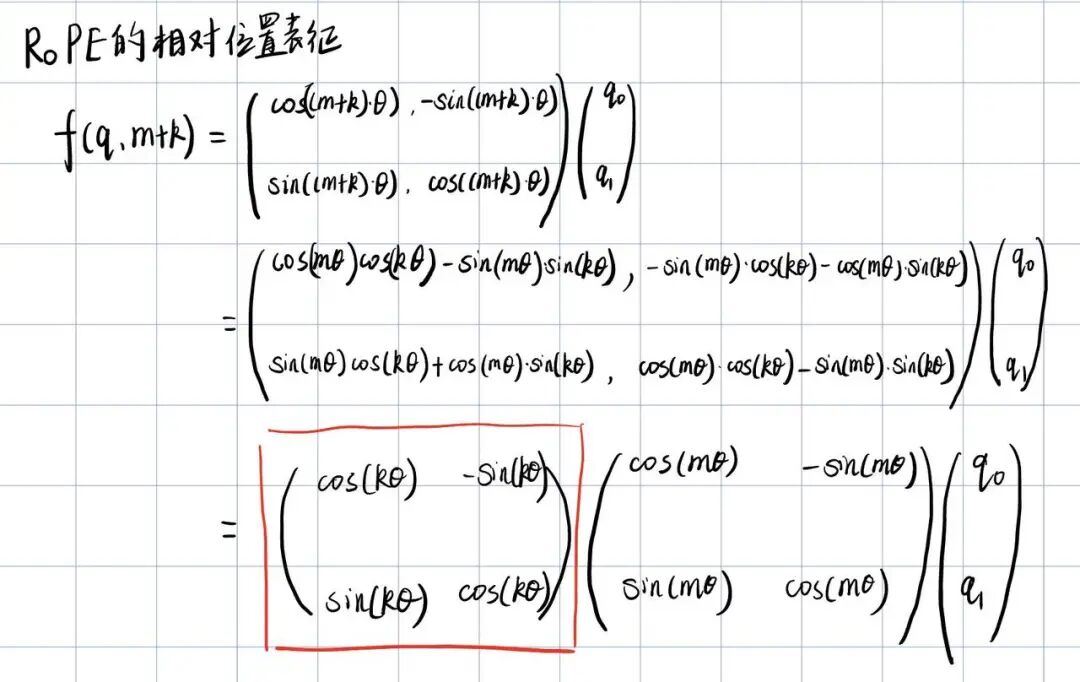 RoPE的相对位置表征
f(q,m+k) = ( cos((m+k)·θ), -sin((m+k)·θ) ) ( q0 )
( sin((m+k)·θ), cos((m+k)·θ) ) ( q1 )
= ( cos(mθ)cos(kθ)-sin(mθ)·sin(kθ), -sin(mθ)·cos(kθ)-cos(mθ)·sin(kθ) ) ( q0 )
( sin(mθ)cos(kθ)+cos(mθ)·sin(kθ), cos(mθ)·cos(kθ)-sin(mθ)·sin(kθ) ) ( q1 )
= ( cos(kθ) -sin(kθ) ) ( cos(mθ) -sin(mθ) ) ( q0 )
( sin(kθ) cos(kθ) ) ( sin(mθ) cos(mθ) ) ( q1 )